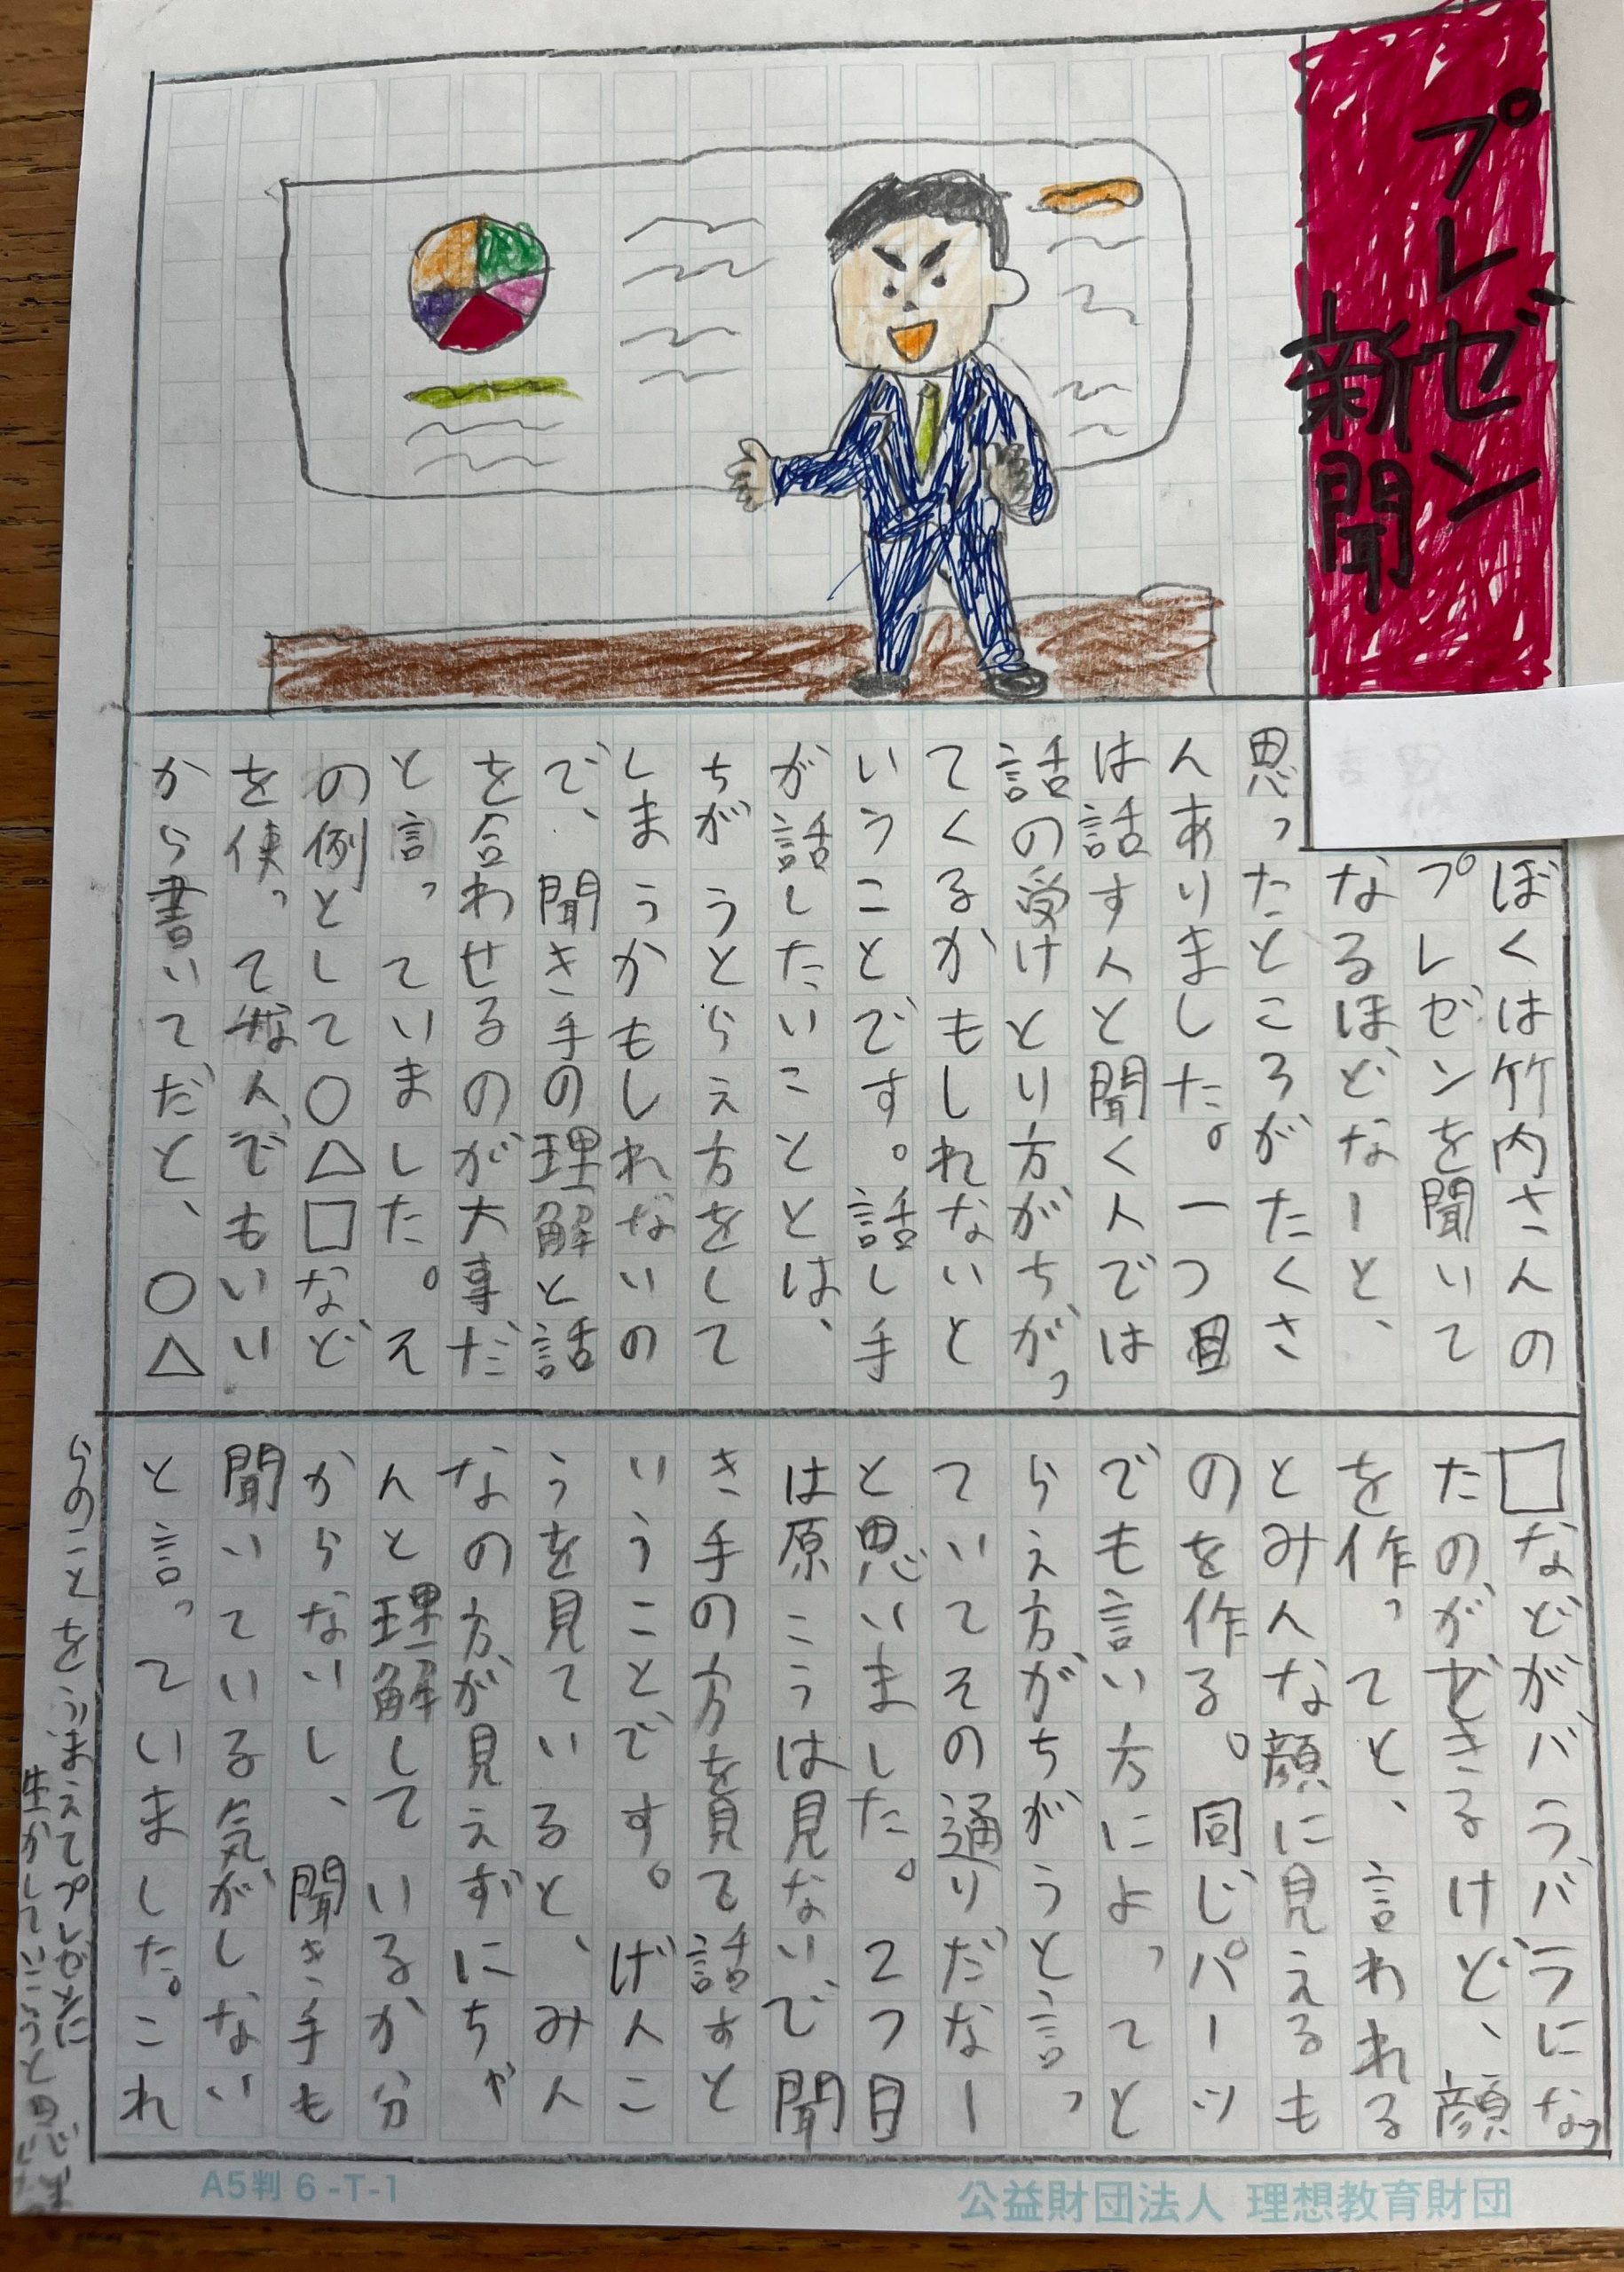 プレゼン
新聞
ぼくは竹内さんの
プレゼンを聞いて
なるほどなーと、
思ったところがたくさ
んありました。一つ目
は話す人と聞く人では
話の受けとり方がちがっ
てくるかもしれないと
いうことです。話し手
が話したいこととは、
ちがうとらえ方をして
しまうかもしれないの
で、聞き手の理解と話
を合わせるのが大事だ
と言っていました。そ
の例として○△□など
を使って
な人でもいい
から書いてだと、○△
□などがバラバラになっ
たのができるけど、顔
を作ってと、言われる
とみんな顔に見えるも
のを作る。同じパーツ
でも言い方によってと
らえ方がちがうと言っ
ていてその通りだなー
と思いました。2つ目
は原こうは見ないで聞
き手の方を見て話すと
いうことです。げんこ
うを見ていると、みん
なの方が見えずにちゃ
んと理解しているか分
からないし、聞き手も
聞いている気がしない
と言っていました。これ
らのことをふまえてプレゼンに
生かしていこうと思い
A5判6-T-1
公益財団法人 理想教育財団